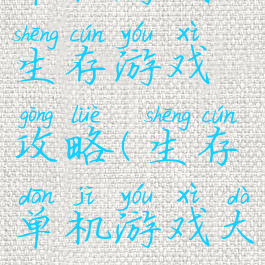 shēng cún yóu xì
生存游戏
gōng lüè shēng cún
攻略(生存
dān jī yóu xì dà
单机游戏大